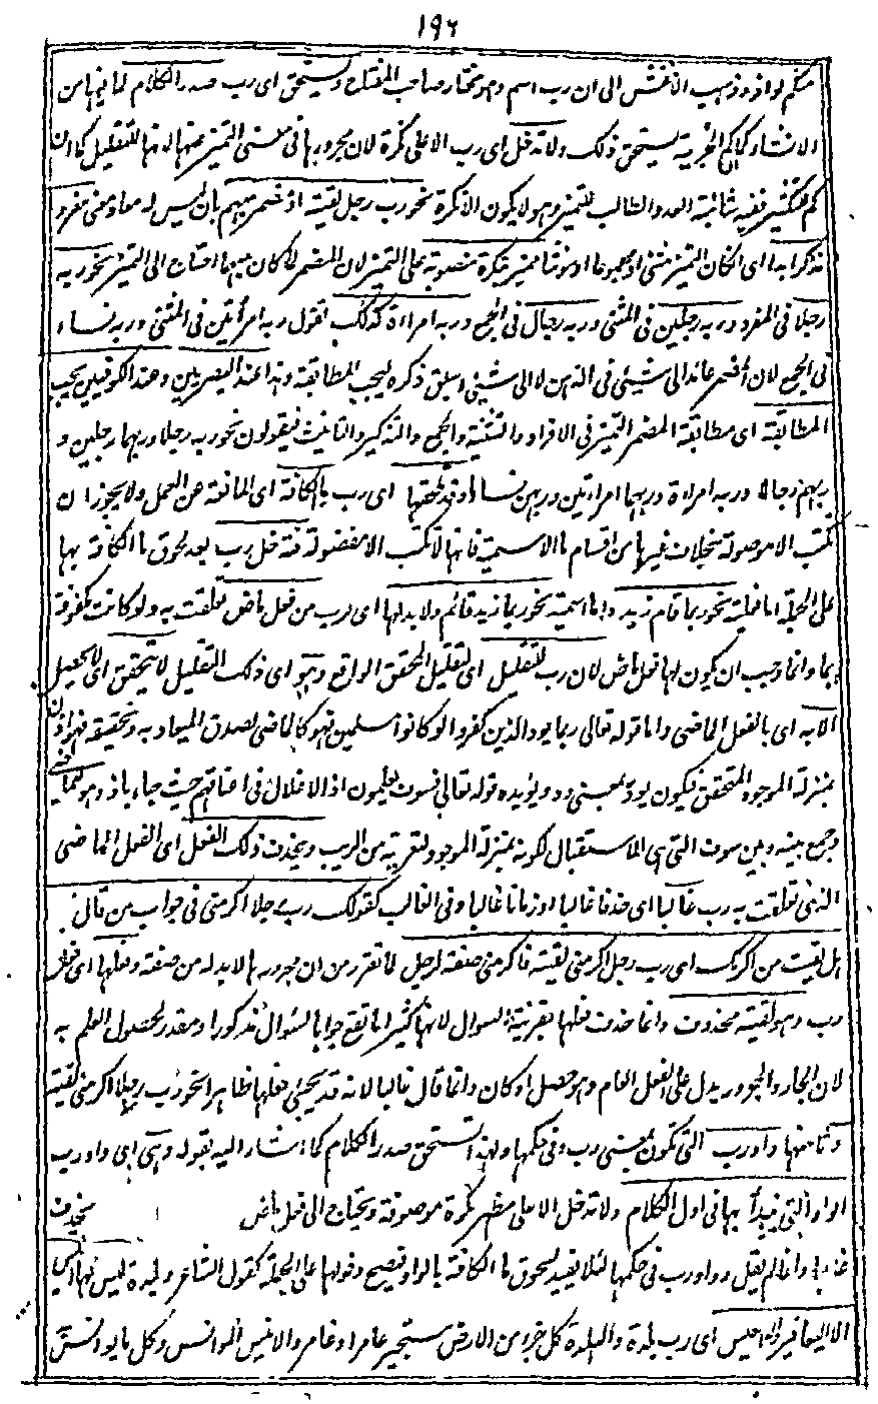 ١٩٦
منكم لواذ وذهب الاخفش الى ان رب اسم وهو مختار صاحب المفتاح ويستحق اى رب صدر الكلام لما فيها من
الانشاء كما كم الخبرية يستحق ذلك ولا تدخل اى رب الا على نكرة لان مجرورها فى معنى التميز عنها لانها للتقليل كما ان
كم للتكثير ففيه شائبة العدد الطالب للتميز وهو لا يكون الا نكرة نحو رب رجل لقيته او ضمير مبهم بان ليس له معاد معنى مفرد
مذكر ابدا اى كان التميز مثنى او مجموعا او مونثا مميز بنكرة منصوبة على التميز لان الضمير لما كان مبهما احتاج الى التميز نحو ربه
رجلا فى المفرد وربه رجلين فى المثنى وربه رجال فى الجمع وربه امراءة كذلك تقول ربه امرأتين فى المثنى وربه نساء
فى الجمع لان الضمير عائد الى شيئى فى الذهن لا الى شيئى سبق ذكره ليجب المطابقة وهذا عند البصريين وعند الكوفيين يجب
المطابقة اى مطابقة المضمر التميز فى الافراد والتثنية والجمع والتذكير والتانيث فيقولون نحو ربه رجلا وربهما رجلين و
ربهم رجالا وربه امراءة وربهما امراتين وربهن نساء وقد تلحقها اى رب ما الكافة اى المانعة عن العمل ولا يجوز ان
تكتب الا موصولة بخلاف غيرها من اقسام ما الاسمية فانها لا تكتب الا مفصولة فتدخل رب بعد لحوق ما الكافة بها
على الجملة اما فعلية نحو ربما قام زيد واما اسمية نحو ربما زيد قائم ولا بد لها اى لرب من فعل ماض تعلقت به ولو كانت مكفوفة
بما وانما وجب ان يكون لها فعل ماض لان رب للتقليل اى لتقليل المحقق الواقع وهو اى ذلك التقليل لا يتحقق اى لا يحصل
الا به اى بالفعل الماضى واما قوله تعالى ربما يود الذين كفروا لو كانوا مسلمين فهو كالماضى لصدق الميعاد به وتحقيقه فهو اذن
بمنزلة الموجود المتحقق فيكون يود بمعنى ود ويؤيده قوله تعالى فسوف يعلمون اذ الاغلال فى اعناقهم حيث جاء باذ وهو لما
وجمع بينه وبين سوف التى هى للاستقبال لكونه بمنزلة الموجود لقربه من الريب ويحذف ذلك الفعل اى الفعل الماضى
الذى تعلقت به رب غالبا اى حذفا غالبا او زمانا غالبا وفى الغالب كقولك رب رجلا اكرمنى فى جواب من قال
هل لقيت من اكرمك اى رب رجل اكرمنى لقيته فاكرمنى صفة لرجل لما تقرر من ان مجرورها لا بد له من صفة وفعلها اى فعل
رب وهو لقيته محذوف وانما حذف فعلها بقرينة السوال لانها كثيرا ما تقع جوابا لسوال مذكور او مقدر لحصول العلم به
لان الجار والمجرور يدل على الفعل العام وهو حصل او كان وانما قال غالبا لانه قد يجئ فعلها ظاهرا نحو رب رجلا اكرمنى لقيته
وثامنها واو رب التى تكون بمعنى رب وفى حكمها ولهذا تستحق صدر الكلام كما اشار اليه بقوله وهى اى واو رب
الواو التى يبدأ بها فى اول الكلام ولا تدخل الا على مظهر نكرة موصوفة ويحتاج الى فعل ماض يحذف
غالبا وانما لم يقل وواو رب فى حكمها لئلا يفيد لحوق ما الكافة بالواو فيصح دخولها على الجملة كقول الشاعر وبلدة ليس بها انيس
الا اليعافير والا العيس اى رب بلدة والبلدة كل جزء من الارض مستحيز عامر او غامر والانيس الموانس وكل ما يوانس